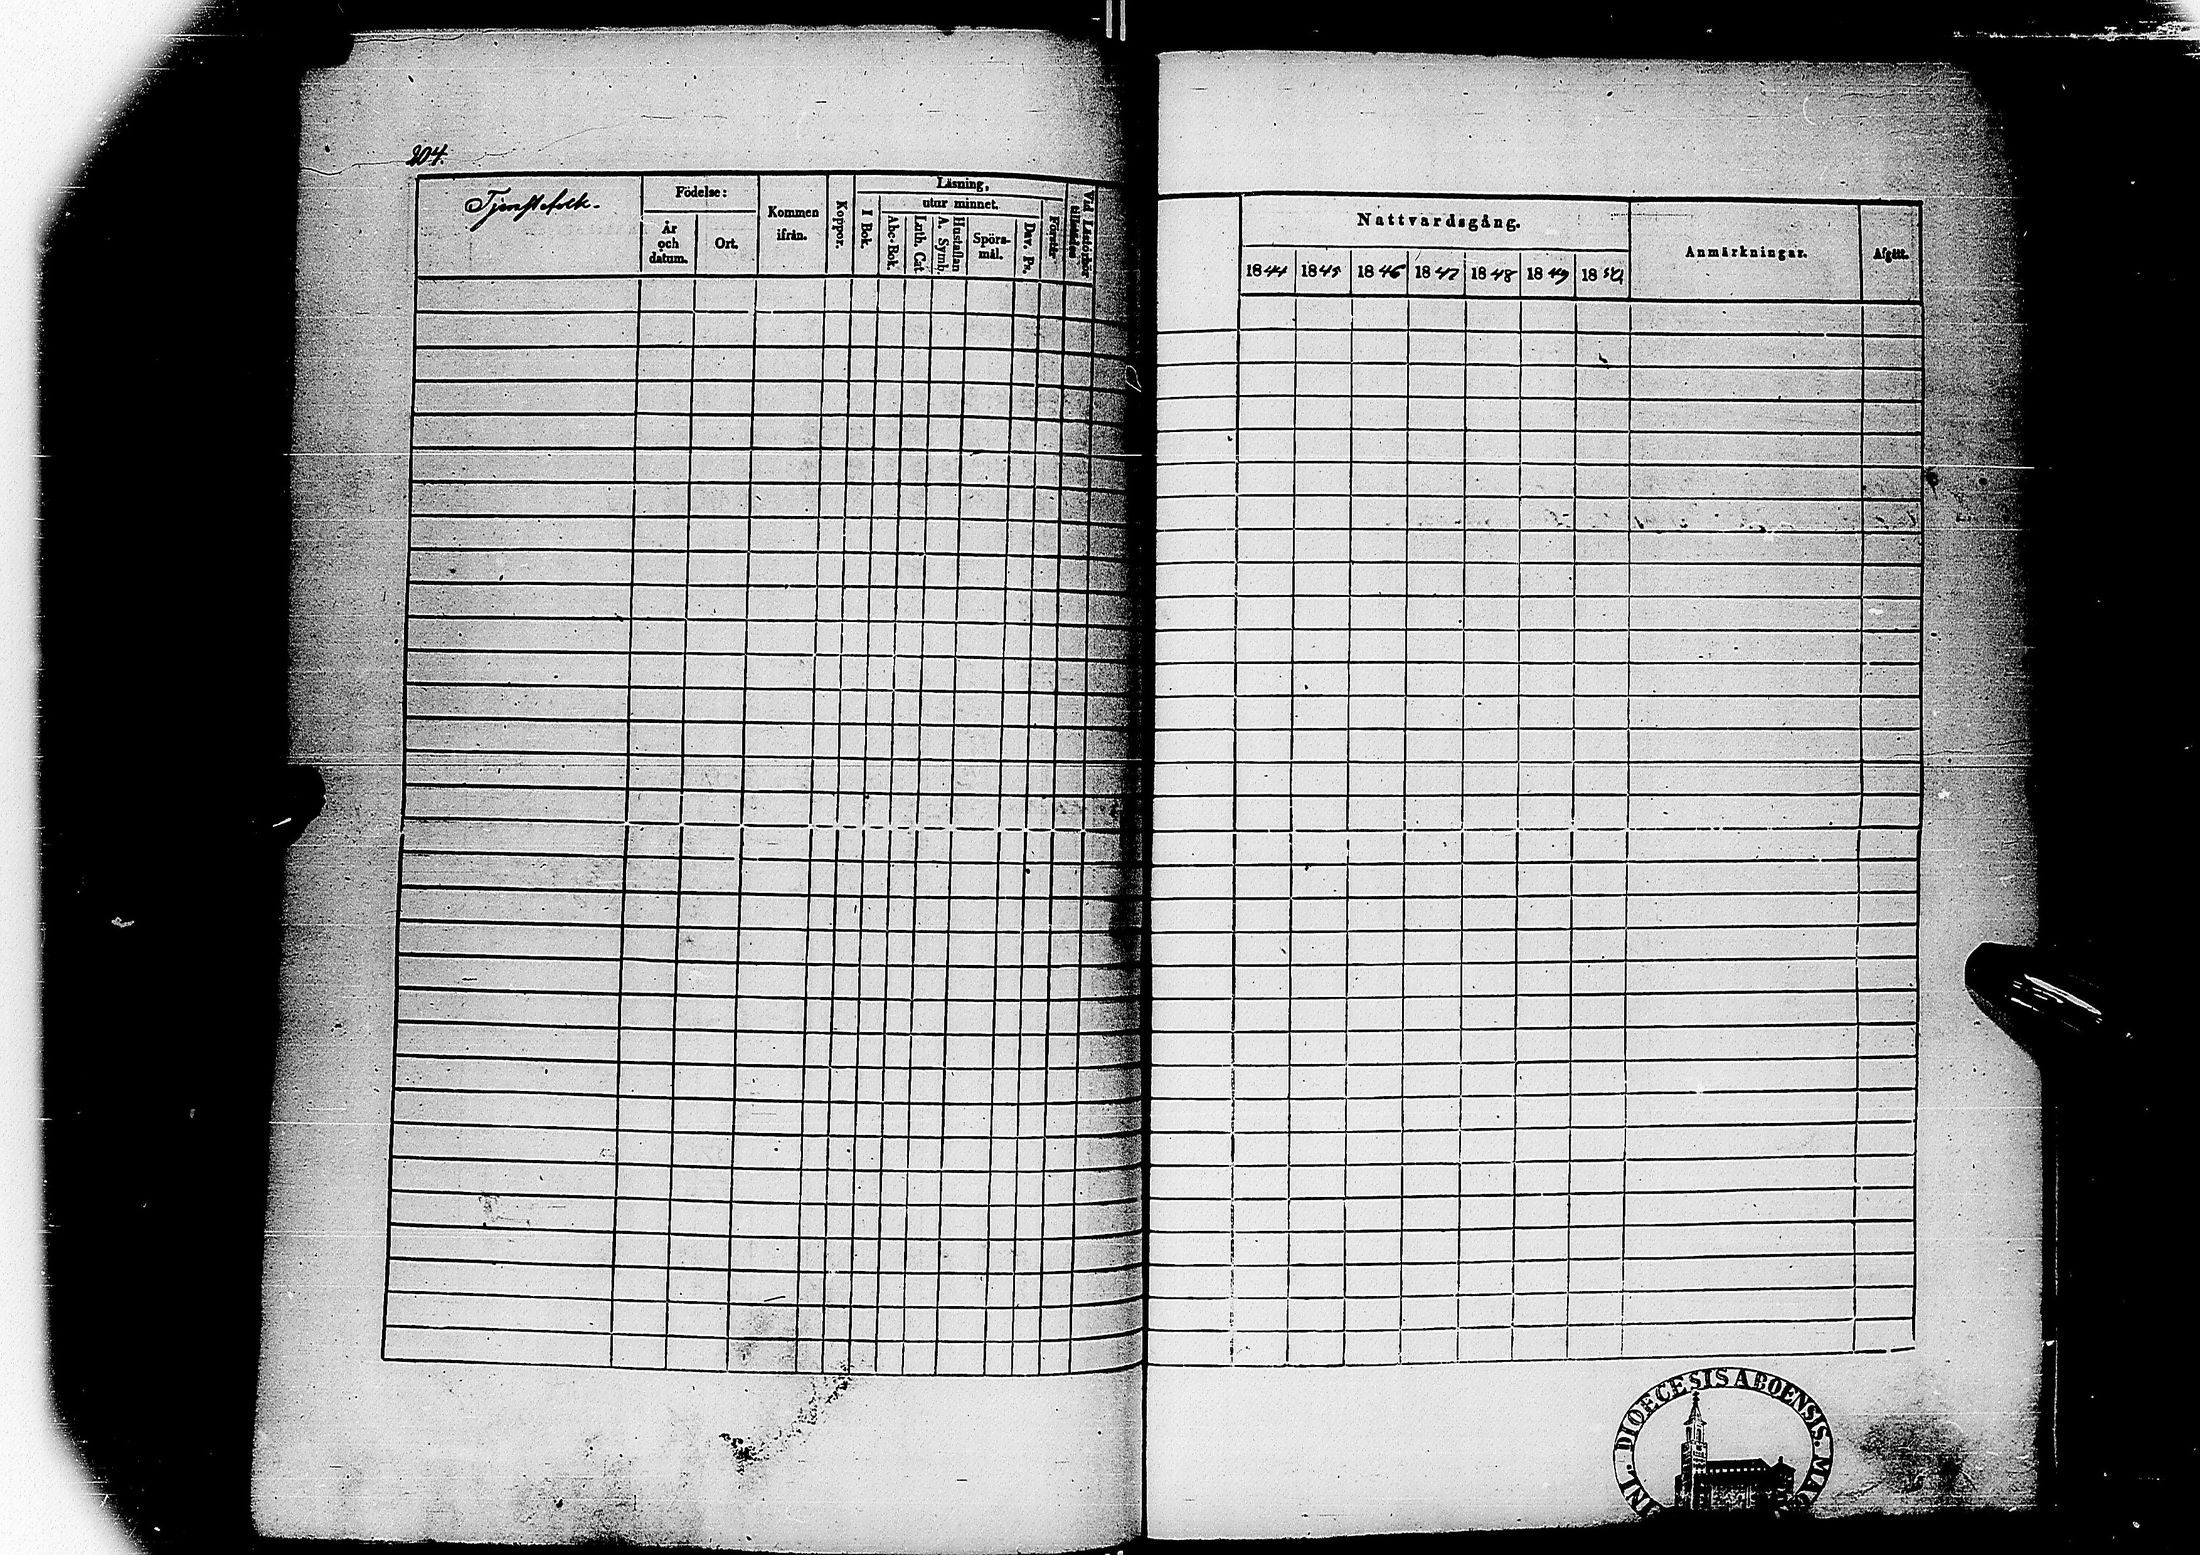 204.
Tjenstefolk.
Födelse:
År
och
datum.
Ort.
Kommen
ifrån.
Koppor.
Läsning,
I Bok.
utur minnet.
Abc-Bok.
Luth. Cat.
Hustaflan
A. Symb.
Spörs-
mål.
Dav. Ps.
Förstår
Vid Läsförhör
Nattvardsgång.
1844 1845 1846 1847 1848 1849 1850
Anmärkningar.
Afgått.
DIOECESIS ABOENSIS. MAG